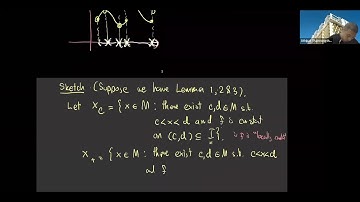 Sketch (Suppose we have Lemmas 1, 2 & 3).
Let X_c = {x ∈ M : there exist c, d ∈ M s.t.
c < x < d and f is constant
on (c, d) ⊆ I}
X_+ = {x ∈ M : there exist c, d ∈ M s.t. c < x < d
and f